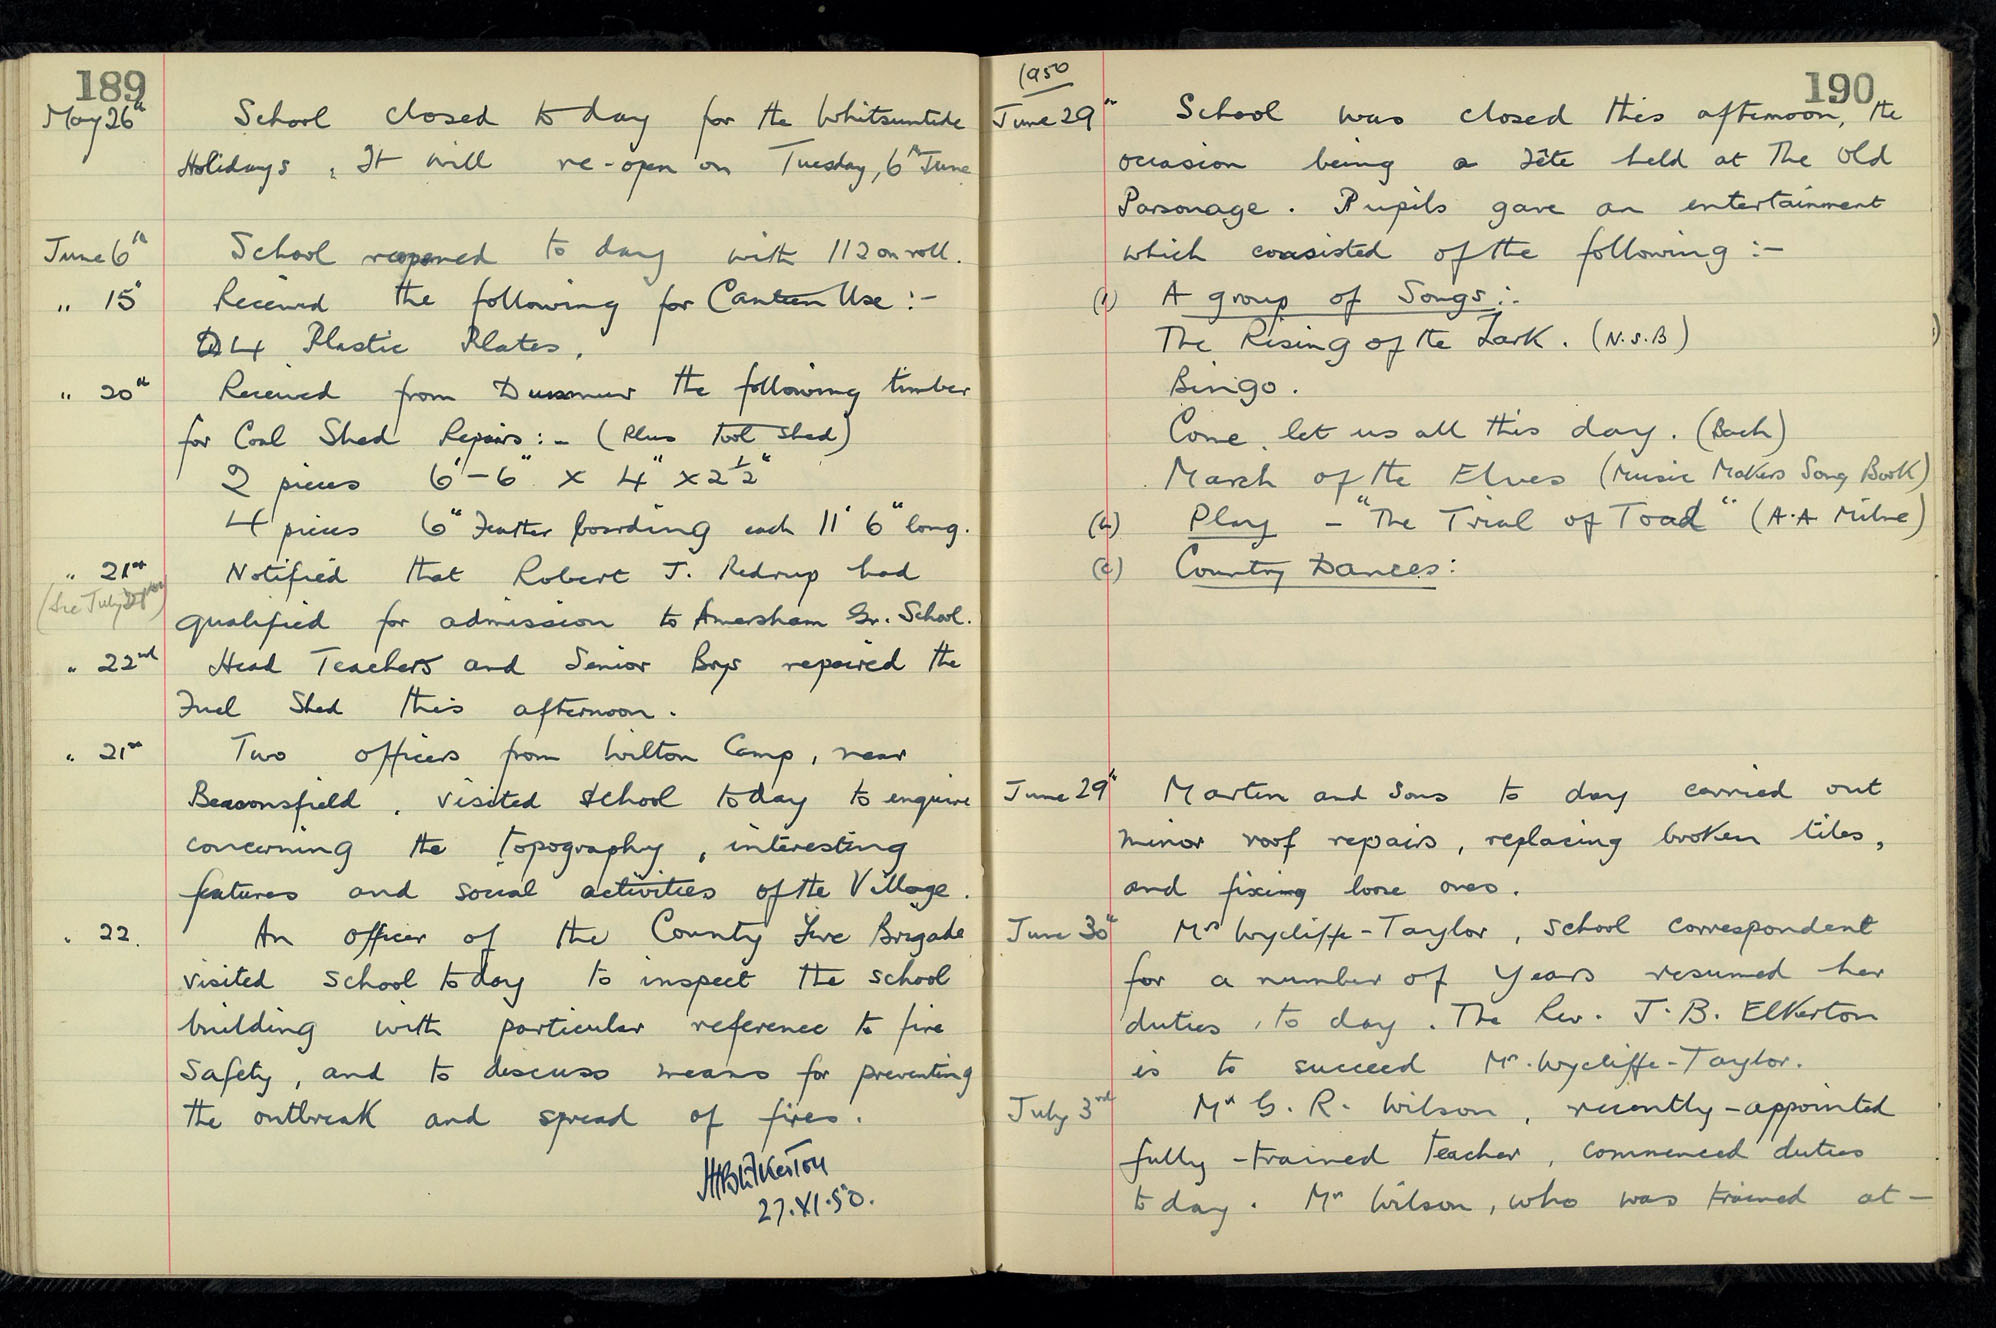 189
May 26th School closed to day for the Whitsuntide
Holidays. It will re-open on Tuesday, 6th June
June 6th School reopened to day with 112 on roll.
" 15 Received the following for Canteen Use :-
24 Plastic Plates.
" 20th Received from the following timber
for Coal Shed Repairs :- (Plus Tool Shed)
2 pieces 6'-6" x 4" x 2½"
4 pieces 6" Feather boarding each 11' 6" long.
" 21st Notified that Robert J. Redrup had
(See July)
qualified for admission to Amersham Gr. School.
" 22nd Head Teachers and Senior Boys repaired the
Fuel Shed this afternoon.
" 21st Two officers from Wilton Camp, near
Beaconsfield, visited school today to enquire
concerning the topography, interesting
features and social activities of the Village.
" 22. An officer of the County Fire Brigade
visited school today to inspect the school
building with particular reference to fire
safety, and to discuss means for preventing
the outbreak and spread of fires.
Elkerton
27.XI.50.
1950
190
June 29th School was closed this afternoon, the
occasion being a Fête held at The Old
Parsonage. Pupils gave an entertainment
which consisted of the following :-
A group of Songs :-
The Rising of the Lark. (N.S.B)
Bingo.
Come let us all this day. (Bach)
March of the Elves (Music Makers Song Book)
(b) Play - "The Trial of Toad" (A.A Milne)
(c) Country Dances :
June 29th Martin and Sons to day carried out
minor roof repairs, replacing broken tiles,
and fixing loose ones.
June 30th Mrs Wycliffe-Taylor, school correspondent
for a number of years resumed her
duties, to day. The Rev. J. B. Elkerton
is to succeed Mrs. Wycliffe-Taylor.
July 3rd Mr G. R. Wilson, recently-appointed
fully-trained teacher, commenced duties
to day. Mr Wilson, who was trained at -